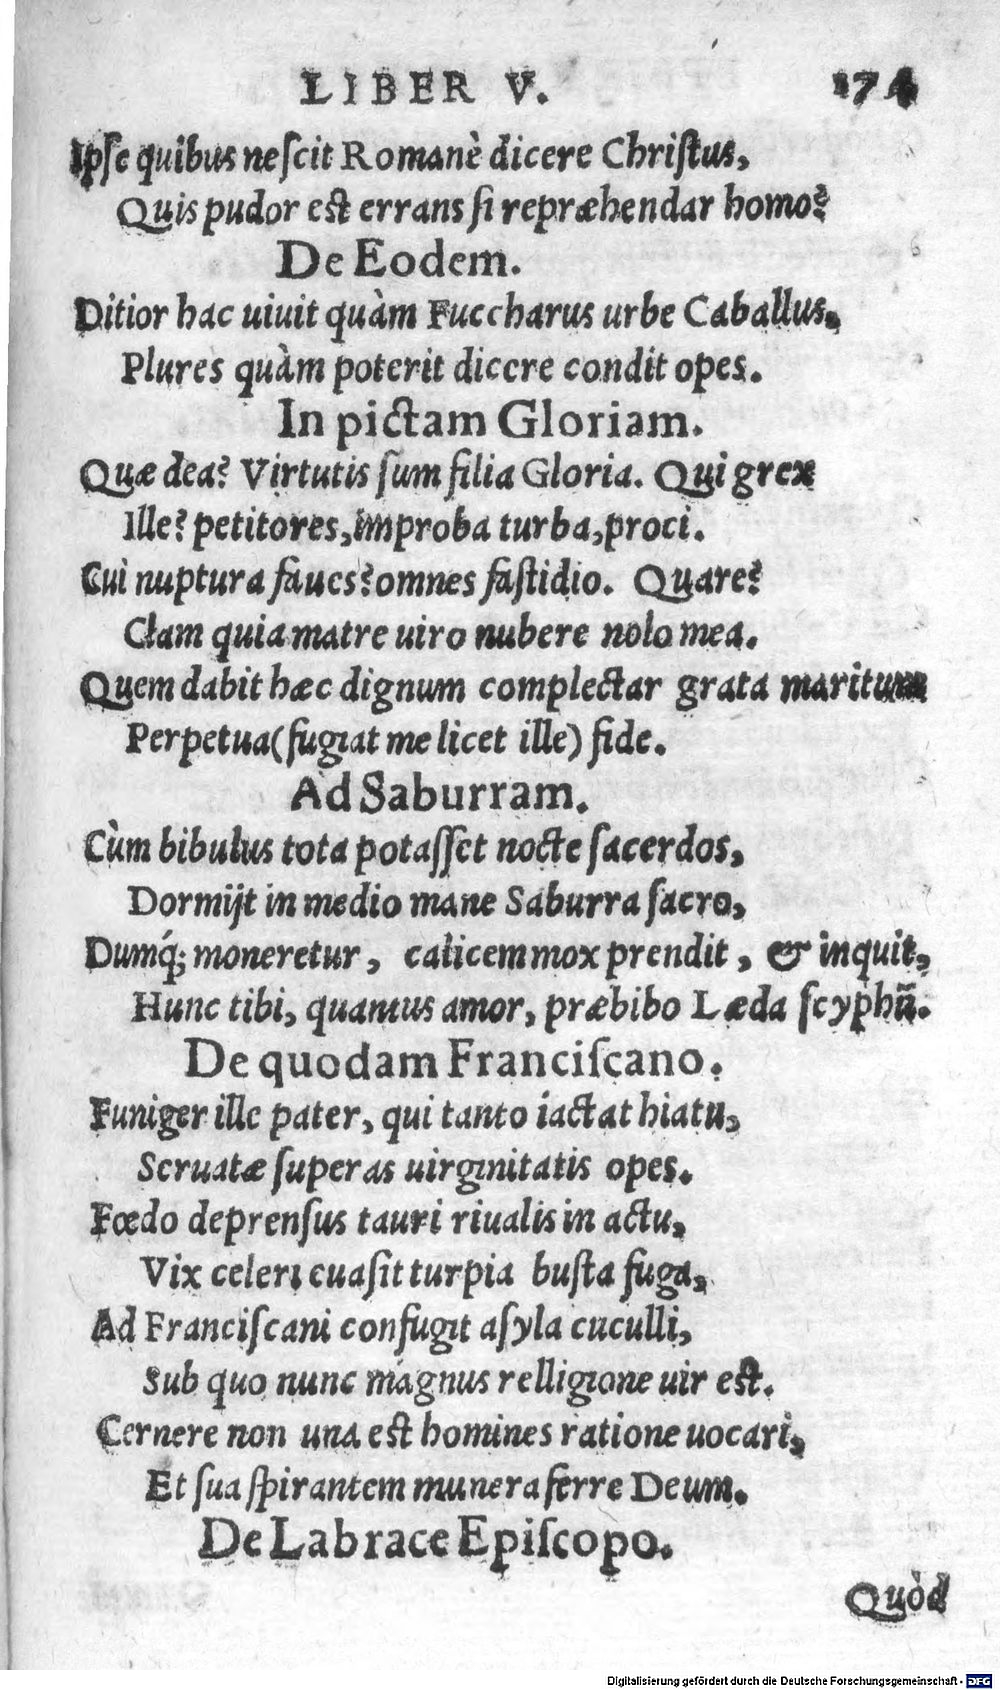 LIBER V. 174
Ipse quibus nescit Romanè dicere Christus,
Quis pudor est errans si repræhendar homo?
De Eodem.
Ditior hac uiuit quàm Fuccharus urbe Caballus,
Plures quàm poterit dicere condit opes.
In pictam Gloriam.
Quæ dea? Virtutis sum filia Gloria. Qui grex
Ille? petitores, improba turba, proci.
Cui nuptura faues? omnes fastidio. Quare?
Clam quia matre uiro nubere nolo mea.
Quem dabit hæc dignum complectar grata maritum
Perpetua (fugiat me licet ille) fide.
Ad Saburram.
Cùm bibulus tota potasset nocte sacerdos,
Dormijt in medio mane Saburra sacro,
Dumq́; moneretur, calicem mox prendit, & inquit,
Hunc tibi, quantus amor, præbibo Læda scyphū.
De quodam Franciscano.
Funiger ille pater, qui tanto iactat hiatu,
Seruatæ superas uirginitatis opes.
Fœdo deprensus tauri riualis in actu,
Vix celeri euasit turpia busta fuga,
Ad Franciscani confugit asyla cuculli,
Sub quo nunc magnus relligione uir est.
Cernere non una est homines ratione uocari,
Et sua spirantem munera ferre Deum.
De Labrace Episcopo.
Quòd
Digitalisierung gefördert durch die Deutsche Forschungsgemeinschaft - DFG